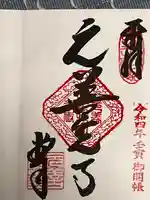 奉拝
令和四年 壬寅 御開帳
元善光寺